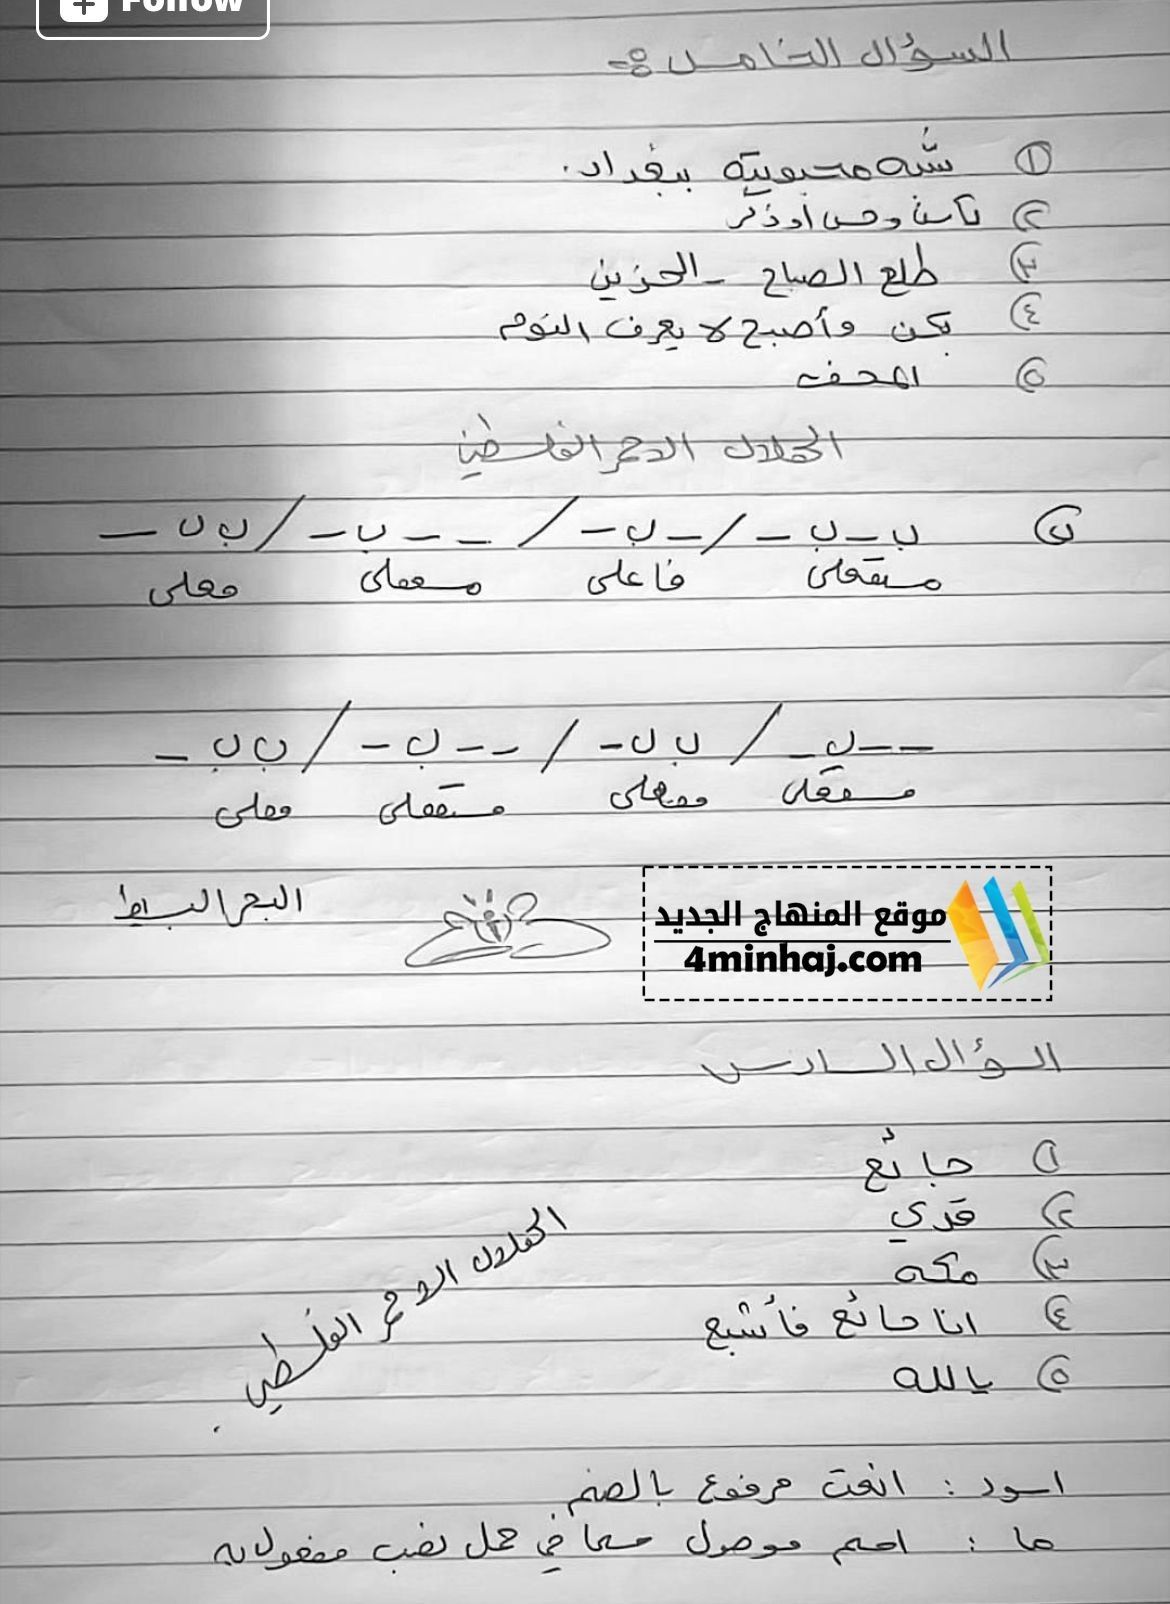 Follow
السؤال الخامس :-
① شبه محبوبته ببغداد.
② وحس أو ذكر
③ طلع الصباح - الحزين
④ تكن وأصبح لا يعرف النوم
⑤
الهلال الاحمر الفلسطيني
ب) ب - ب - / - ب - / - - ب - / ب ب -
متفعلن فاعلن مستفعلن فعلن
- - ب - / ب ب - / - - ب - / ب ب -
مستفعلن فعلن مستفعلن فعلن
البحر البسيط
موقع المنهاج الجديد
4minhaj.com
السؤال السادس
١) جائع
٢) قدي
٣) مكة
٤) انا جائع فأشبع
٥) يالله
الهلال الاحمر الفلسطيني
اسود : انعت مرفوع بالضم
ما : اسم موصول في محل نصب مفعول به